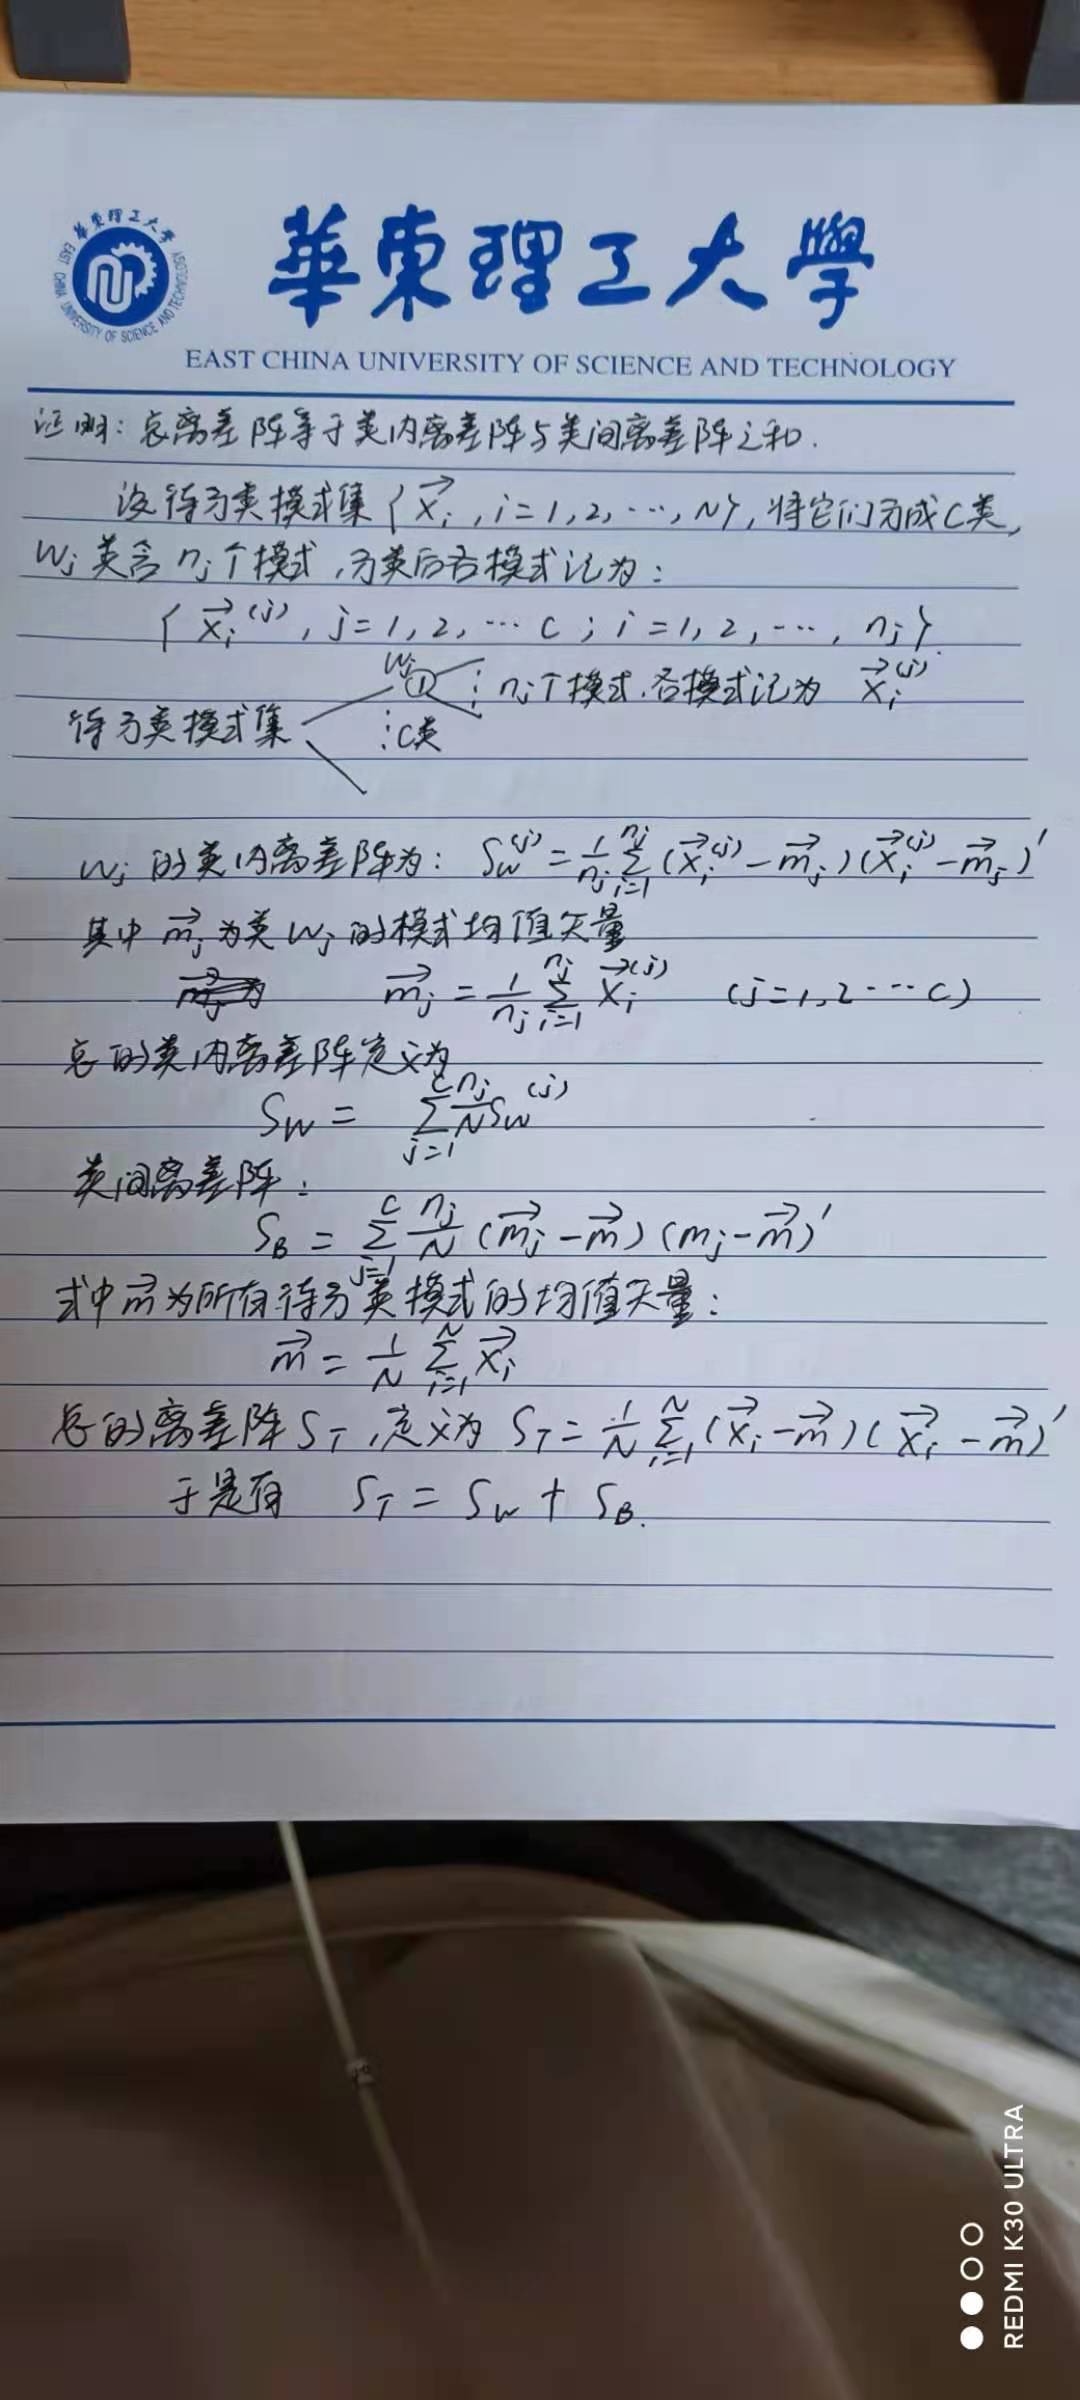 華東理工大學
EAST CHINA UNIVERSITY OF SCIENCE AND TECHNOLOGY
華東理工大學
EAST CHINA UNIVERSITY OF SCIENCE AND TECHNOLOGY
证明：总离差阵等于类内离差阵与类间离差阵之和.
设待分类模式集{x⃗ᵢ, i=1,2,…,N}, 将它们分成C类,
Wj 类含 nj个模式,分类后各模式记为：
{x⃗ᵢ⁽ʲ⁾, j=1,2,…c; i=1,2,…,nj}.
Wj
① ⋮ nj个模式.各模式记为 x⃗ᵢ⁽ʲ⁾
待分类模式集 ⋮C类
Wj 的类内离差阵为： Sw⁽ʲ⁾ = 1/nj Σᵢ₌₁ⁿʲ (x⃗ᵢ⁽ʲ⁾ - m⃗j)(x⃗ᵢ⁽ʲ⁾ - m⃗j)′
其中 m⃗j 为类 Wj 的模式均值矢量
m⃗j = 1/nj Σᵢ₌₁ⁿʲ x⃗ᵢ⁽ʲ⁾ (j=1,2…c)
总的类内离差阵定义为
Sw = Σⱼ₌₁ᶜ nj/N Sw⁽ʲ⁾
类间离差阵：
S_B = Σⱼ₌₁ᶜ nj/N (m⃗j - m⃗)(mj - m⃗)′
式中m⃗为所有待分类模式的均值矢量：
m⃗ = 1/N Σᵢ₌₁ᴺ x⃗ᵢ
总的离差阵 S_T,定义为 S_T = 1/N Σᵢ₌₁ᴺ (x⃗ᵢ - m⃗)(x⃗ᵢ - m⃗)′
于是有 S_T = Sw + S_B.
REDMI K30 ULTRA